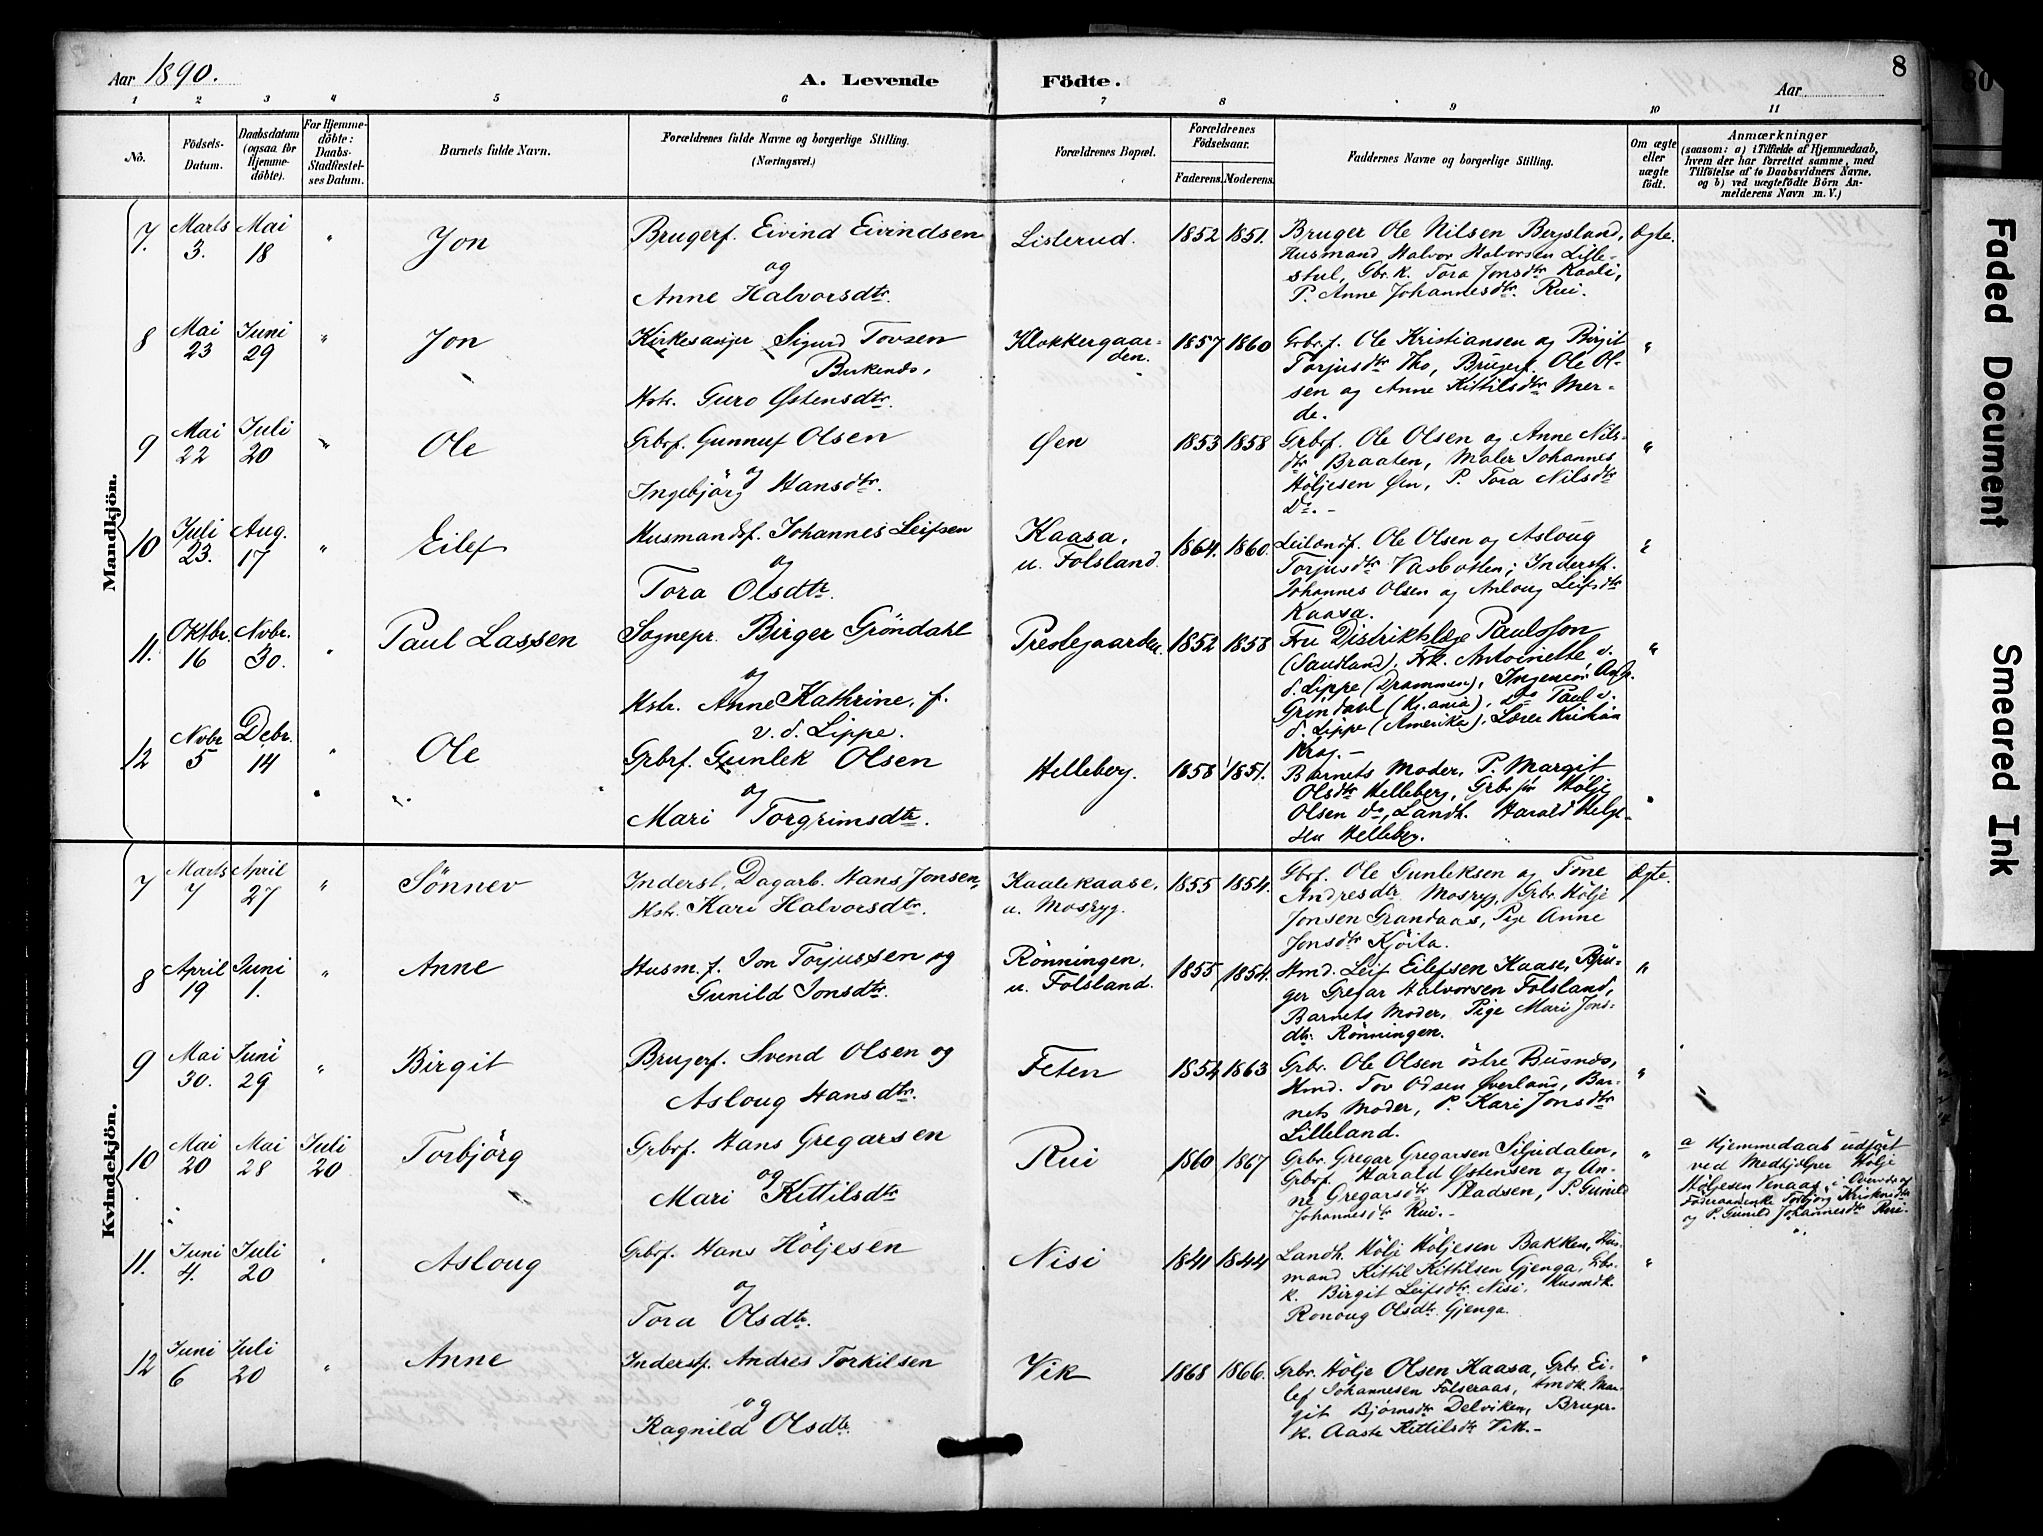 Aar 1890.
A. Levende Födte.
8
Aar
1 2 3 4 5 6 7 8 9 10 11
No.
Födsels-Datum.
Daabsdatum (ogsaa for Hjemme-döbte).
For Hjemme-döbte: Daabs-Stadfestel-ses Datum.
Barnets fulde Navn.
Forældrenes fulde Navne og borgerlige Stilling.
(Næringsvei.)
Forældrenes Bopæl.
Forældrenes Födselsaar.
Faderens. Moderens.
Faddernes Navne og borgerlige Stilling.
Om ægte eller uægte födt.
Anmærkninger
(saasom: a) i Tilfælde af Hjemmedaab,
hvem der har forrettet samme, med
Tilföielse af to Daabsvidners Navne,
og b) ved uægtefödte Börn An-
melderens Navn m. V.)
Mandkjön.
7. Marts 3. Mai 18 " Jon
Brugerf. Eivind Eivindsen
og
Anne Halvorsdtr.
Listerud. 1852 1851.
Bruger Ole Nilsen Bergsland,
Husmand Halvor Halvorsen Lille-
stul, Gbr. k. Tora Jonsdtr Kaali,
P. Anne Johannesdtr. Rui.
Ægte.
8 Mai 23 Juni 29 " Jon
Kirkesanger Sigurd Tovsen
Birkenes,
Hstr. Guro Østensdtr.
Klokkergaar-
den. 1857 1860
Grbrf. Ole Kristiansen og Birgit
Torjusdtr Tho, Brugerf. Ole Ol-
sen og Anne Kittilsdtr Mer-
de.
"
9 Mai 22 Juli 20 " Ole
Grbrf. Gunnuf Olsen
og
Ingebjörg Hansdtr.
Øen 1853 1858
Grbrf. Ole Olsen og Anne Nils-
dtr Braaten, Maler Johannes
Höljesen Øen, P. Tora Nilsdtr
Do. -
"
10 Juli 23. Aug. 17 " Eilef
Husmandsf. Johannes Leifsen
og
Tora Olsdtr.
Kaasa,
u. Folsland. 1864. 1860.
Leilændf. Ole Olsen og Asloug
Torjusdtr Vasbotten; Inderstf.
Johannes Olsen og Asloug Leifsdtr
Kaasa.
"
11. Oktbr. 16 Novbr. 30. " Paul Lassen
Sognepr. Birger Gröndahl
og
Hstr. Anne Kathrine, f.
v. d. Lippe.
Prestegaarden. 1852 1858
Fru Distriktslæge Paulsson
(Saudland), Frk. Antoinette v.
d. Lippe (Drammen), Ingeniör
Gröndahl (Kr.ania), Do Paul v.
d. Lippe (Amerika), Lærer Kristian
Krag. -
"
12 Novbr 5 Debr. 14 " Ole
Grbrf. Gunlek Olsen
og
Mari Torgrimsdtr.
Helleberg. 1858 1851.
Barnets Moder, P. Margit
Olsdtr Helleberg, Grbr. Hölje
Olsen do, Landh. Harald Helge-
sen Helleberg.
"
Kvindekjön.
7 Marts 7 April 27 " Sönnev
Inderst, Dagarb. Hans Jonsen,
Hstr. Kari Halvorsdtr.
Kaalekaase,
u. Mosryg. 1855 1854.
Gbrf. Ole Gunleksen og Tone
Andresdtr Mosryg, Grbr. Hölje
Jonsen Grandaas, Pige Anne
Jonsdtr Kjöita.
Ægte.
8 April 19 Juni 1. " Anne
Husm. f. Jon Torjussen og
Gunild Jonsdtr.
Rönningen,
u. Folsland. 1855 1854.
Hmd. Leif Eilefsen Kaase, Bru-
ger Gregar Halvorsen Folsland,
Barnets Moder, Pige Mari Jons-
dtr. Rönningen.
"
9 Mai 30. Juni 29 " Birgit
Brugerf. Svend Olsen og
Asloug Hansdtr.
Feten 1854 1863
Grbr. Ole Olsen östre Busnes,
Hmd. Tov Odsen Øverland, Bar-
nets Moder, P. Kari Jonsdtr
Lilleland.
"
10 Mai 20 Mai 28 Juli 20 Torbjörg
Grbrf. Hans Gregarsen
og
Mari Kittilsdtr
Rui 1860 1867
Grbr. Gregar Gregarsen Siljudalen,
Grbrf. Harald Østensen og An-
ne Gregarsdtr Pladsen, P. Gunild
Johannesdtr Rui. -
"
a Hjemmedaab udfört
ved Medhjelper Hölje
Höljesen Knaas, i Overvær af
Föderaadsenke Torbjörg
og P. Gunild Johannesdtr Rui.
11. Juni 4. Juli 20 " Asloug
Grbrf. Hans Höljesen
og
Tora Olsdtr.
Nisi 1841 1844
Landh. Hölje Höljesen Bakken, Hus-
mand Kittil Kittilsen Gjenga, Grbr.
k. Birgit Leifsdtr. Nisi, Husmdk.
Ronoug Olsdtr. Gjenga.
"
12 Juni 6 Juli 20 " Anne
Inderstf. Andres Torkilsen
og
Ragnild Olsdtr.
Vik 1868 1866.
Grbr. Hölje Olsen Kaasa, Grbr. Ei-
lef Johannesen Folseraas, Hmdk. Mar-
git Bjørnsdtr Delviken, Bruger-
k. Aaste Kittilsdtr Vik. -
"
80
Faded Document
Smeared Ink